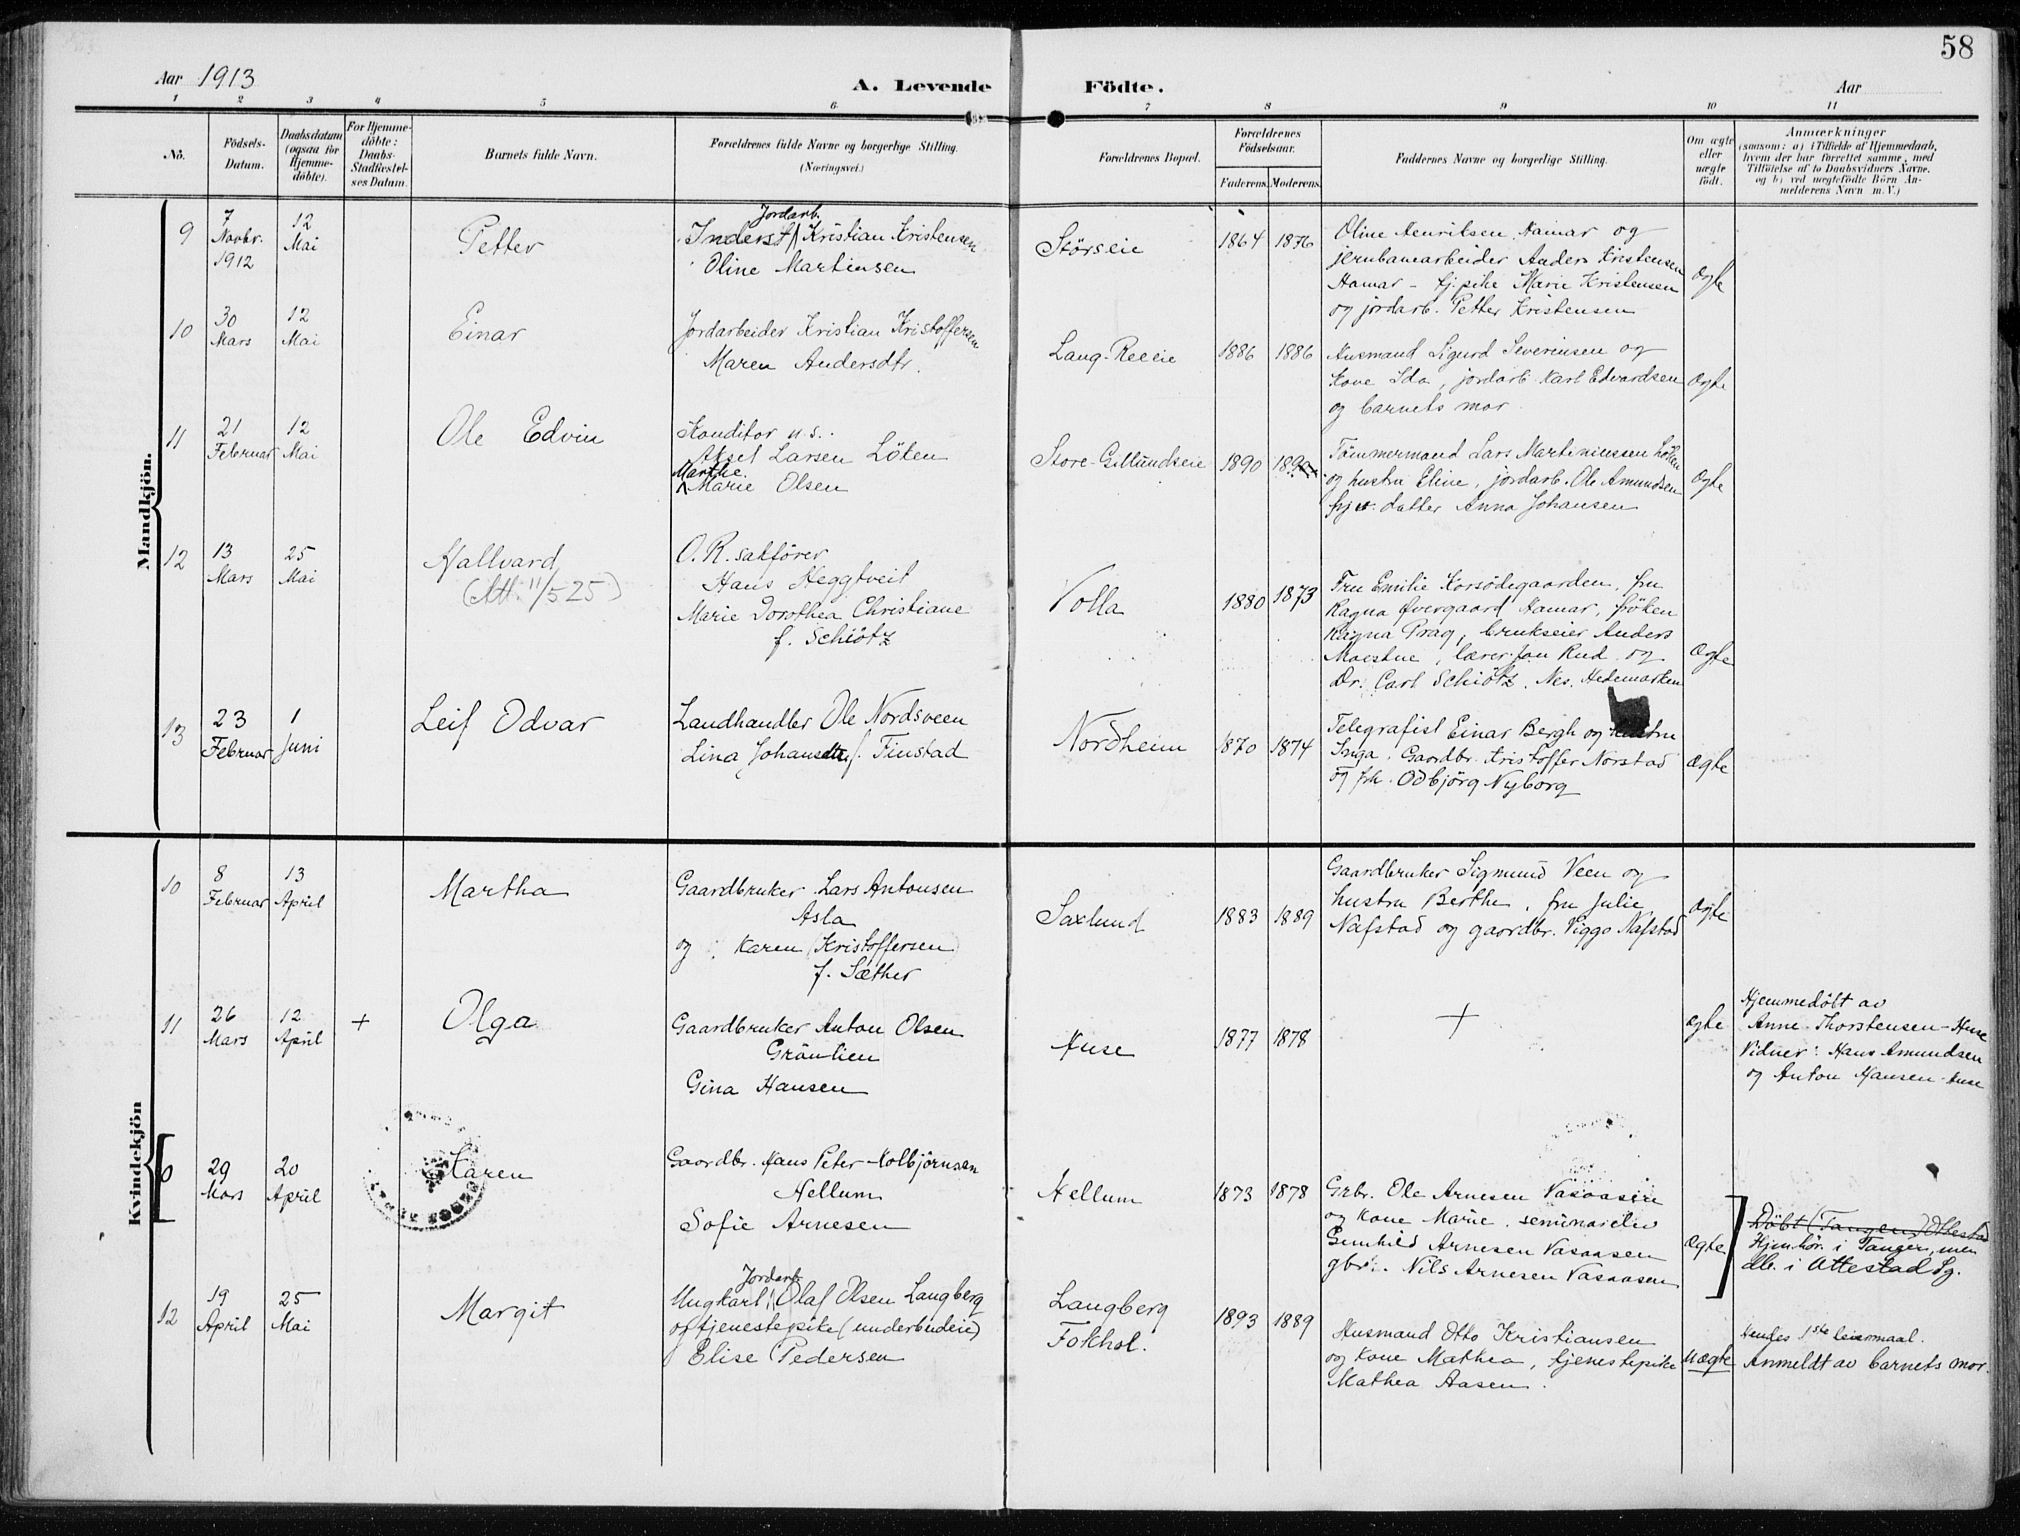 58
Aar 1913 A. Levende Födte. Aar
1 2 3 4 5 6 7 8 9 10 11
Nö.
Födsels-
Datum.
Daabsdatum
(ogsaa for
Hjemme-
döbte).
For Hjemme-
döbte:
Daabs-
Stadfæstel-
ses Datum.
Barnets fulde Navn.
Forældrenes fulde Navne og borgerlige Stilling.
(Næringsvei.)
Forældrenes Bopæl.
Forældrenes
Födselsaar.
Faderens. Moderens.
Faddernes Navne og borgerlige Stilling.
Om ægte
eller
uægte
födt.
Anmærkninger
(saasom: a) i Tilfælde af Hjemmedaab,
hvem der har forrettet samme, med
Tilföielse af to Daabsvidners Navne.
og b) ved uægtefödte Börn An-
melderens Navn m. V.)
Mandkjön.
9
7
Novbr.
1912
12
Mai
Petter
Jordarb.
Inderst Kristian Kristensen
Oline Martinsen
Störseie
1864 1876
Oline Henriksen, Hamar og
jernbanearbeider Anders Kristensen
Hamar - tj.pike Marie Kristensen
og jordarb. Petter Kristensen
Ægte
10
30
Mars
12
Mai
Einar
Jordarbeider Kristian Kristoffersen
Maren Andersdtr.
Lang-Reeie
1886 1886
Husmand Sigurd Severinsen og
Kone Ida, jordarb. Karl Edvardsen
og barnets mor
Ægte
11
21
Februar
12
Mai
Ole Edvin
Konditor u.s.
Aksel Larsen Löken
Marthe
Marie Olsen
Store-Gillundseie
1890
Tömmermand Lars Martiniussen Löken
og hustru Eline, jordarb. Ole Amundsen
datter Anna Johansen
Ægte
12
13
Mars
25
Mai
Hallvard
(Att. 11/5 25)
O.R. sakförer
Hans Heggtveit
Marie Dorothea Christiane
f. Schiötz
Volla
1880 1873
Fru Emilie Korsödegaarden, fru
Ragna Övergaard Hamar, fröken
Ragna Prag, brukseier Anders
Maestue, lærer Jon Rud og
Dr. Carl Schiötz. Nes. Hedemarken
Ægte
13
23
Februar
1
Juni
Leif Odvar
Landhandler Ole Nordsveen
Lina f. Finstad
Nordheim
1870 1874
Telegrafist Einar Bergh og hustru
Inga. Gaardbr. Kristoffer Norstad
og frk. Odbjörg Nyborg
Ægte
Kvindekjön
10
8
Februar
13
April
Martha
Gaardbruker Lars Antonsen
Asla
og Karen (Kristoffersen)
f. Sæther
Saxlund
1883 1889
Gaardbruker Sigmund Veen og
hustru Berthe, fru Julie
Nafstad og gaardbr. Viggo Nafstad
Ægte
11
26
Mars
12
April
+
Olga
Gaardbruker Anton Olsen
Grönlien
Gina Hansen
Huse
1877 1878
+
Ægte
Hjemmedöbt av
Anne Thorstensen-Huse
Vidner: Hans Amundsen
og Anton Hansen-Huse
0
29
Mars
20
April
Karen
Gaardbr. Hans Peter Kolbjörnsen
Hellum
Sofie Arnesen
Hellum
1873 1878
Grbr. Ole Arnesen Vasaasen
og Kone Marie, seminarelev
Gunhild Arnesen Vasaasen
gbr. Nils Arnesen Vasaasen
Ægte
Döbt (Tangen) Ottestad
Hjemhör. i Tangen, men
db. i Ottestad Sg.
12
19
April
25
Mai
Margit
Jordarb.
Ungkarl Olaf Olsen Langberg
og tjenestepike (underbudeie)
Elise Pedersen
Langberg
Fokhol.
1893 1889
Husmand Otto Kristiansen
og Kone Mathea, tjenestepike
Mathea Aasen.
Uægte
Hendes 1ste leiermaal.
Anmeldt av barnets mor.